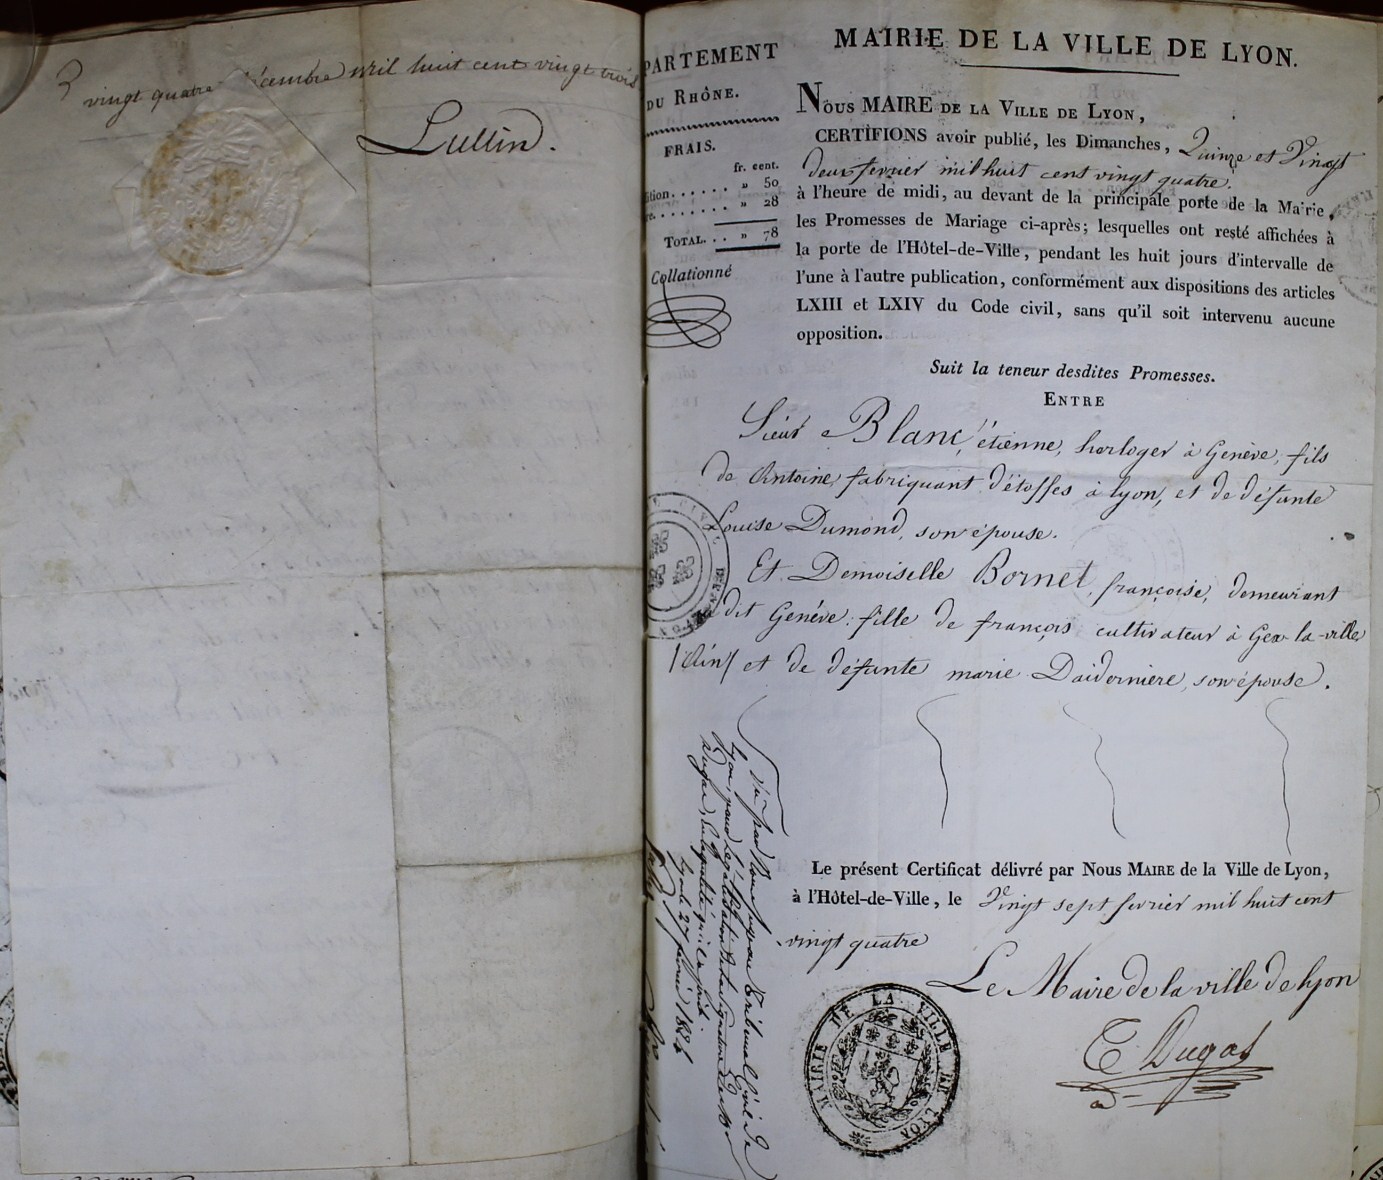 vingt quatre décembre mil huit cent vingt trois
Lullin.
PARTEMENT
DU RHÔNE.
FRAIS.
fr. cent.
ition...... » 50
re........ » 28
TOTAL... » 78
Collationné
MAIRIE DE LA VILLE DE LYON.
NOUS MAIRE DE LA VILLE DE LYON,
CERTIFIONS avoir publié, les Dimanches, Quinze et Vingt
deux fevrier mil huit cent vingt quatre.
à l'heure de midi, au devant de la principale porte de la Mairie,
les Promesses de Mariage ci-après; lesquelles ont resté affichées à
la porte de l'Hôtel-de-Ville, pendant les huit jours d'intervalle de
l'une à l'autre publication, conformément aux dispositions des articles
LXIII et LXIV du Code civil, sans qu'il soit intervenu aucune
opposition.
Suit la teneur desdites Promesses.
ENTRE
Sieur Blanc, étienne, horloger à Genève, fils
de Antoine, fabriquant d'étoffes à Lyon, et de défunte
Louise Dumond, son épouse.
Et Demoiselle Bornet, françoise, demeurant
dit Genève: fille de françois cultivateur à Gex-la-ville
(Ain) et de défunte marie Daidernière, son épouse.
Vu par Nous au Tribunal Civil de
Lyon, pour légalisation de la signature de
Dugas, en la qualité qu'il agit.
Lyon le 27 février 1824
Le présent Certificat délivré par Nous MAIRE de la Ville de Lyon,
à l'Hôtel-de-Ville, le Vingt sept fevrier mil huit cent
vingt quatre
Le Maire de la ville de Lyon
C Dugas
MAIRIE DE LA VILLE DE LYON